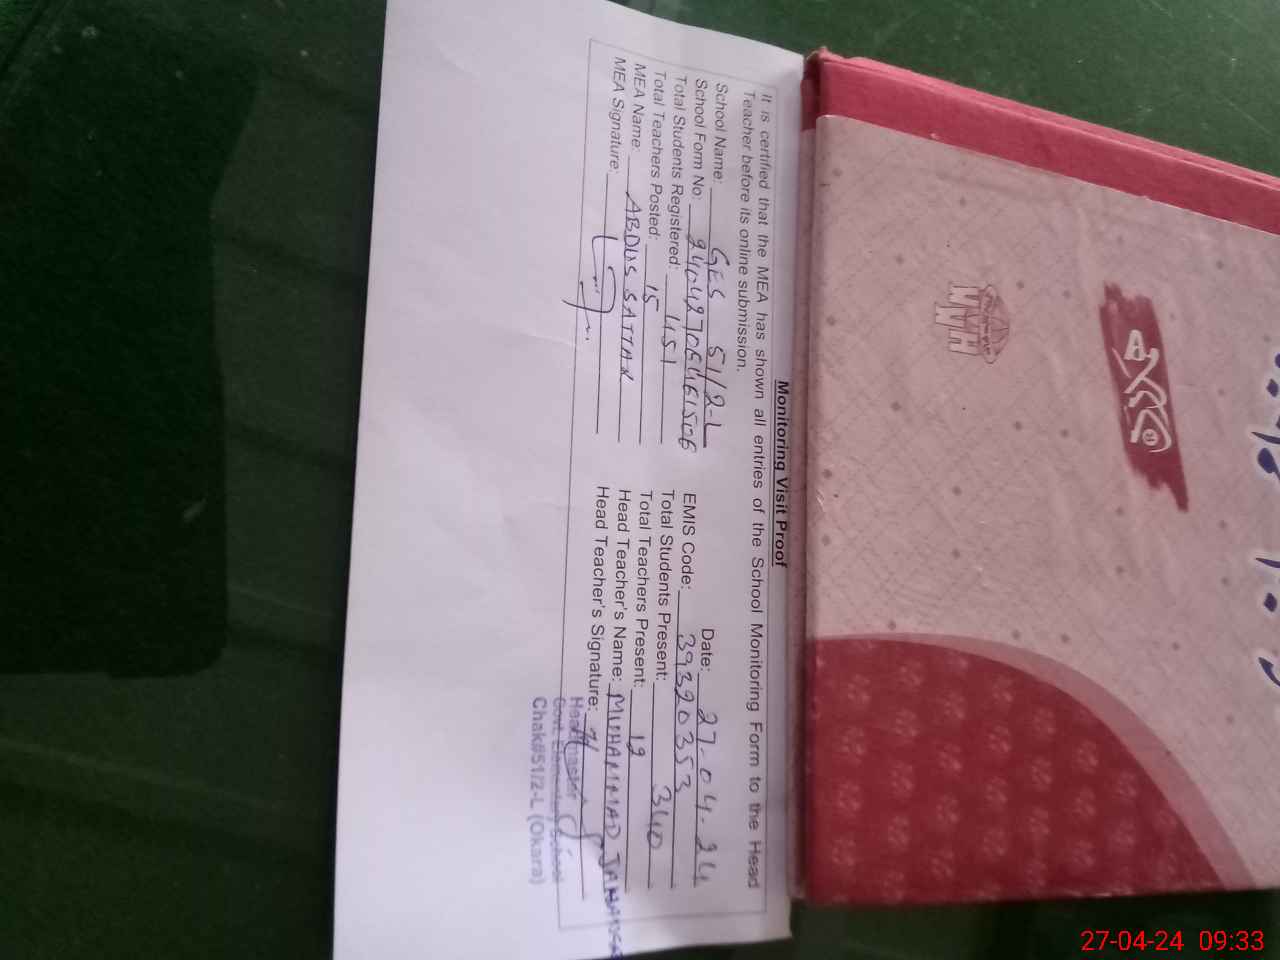 Monitoring Visit Proof
It is certified that the MEA has shown all entries of the School Monitoring Form to the Head
Teacher before its online submission.
Date: 27-04-24
School Name: GES 51/2-L
School Form No: EMIS Code: 39320353
Total Students Registered: 451 Total Students Present: 340
Total Teachers Posted: 15 Total Teachers Present: 12
MEA Name: ABDUS SATTAR Head Teacher's Name: MUHAMMAD
MEA Signature: Head Teacher's Signature:
Headmaster
Govt. Elementary School
Chak#51/2-L (Okara)
27-04-24 09:33